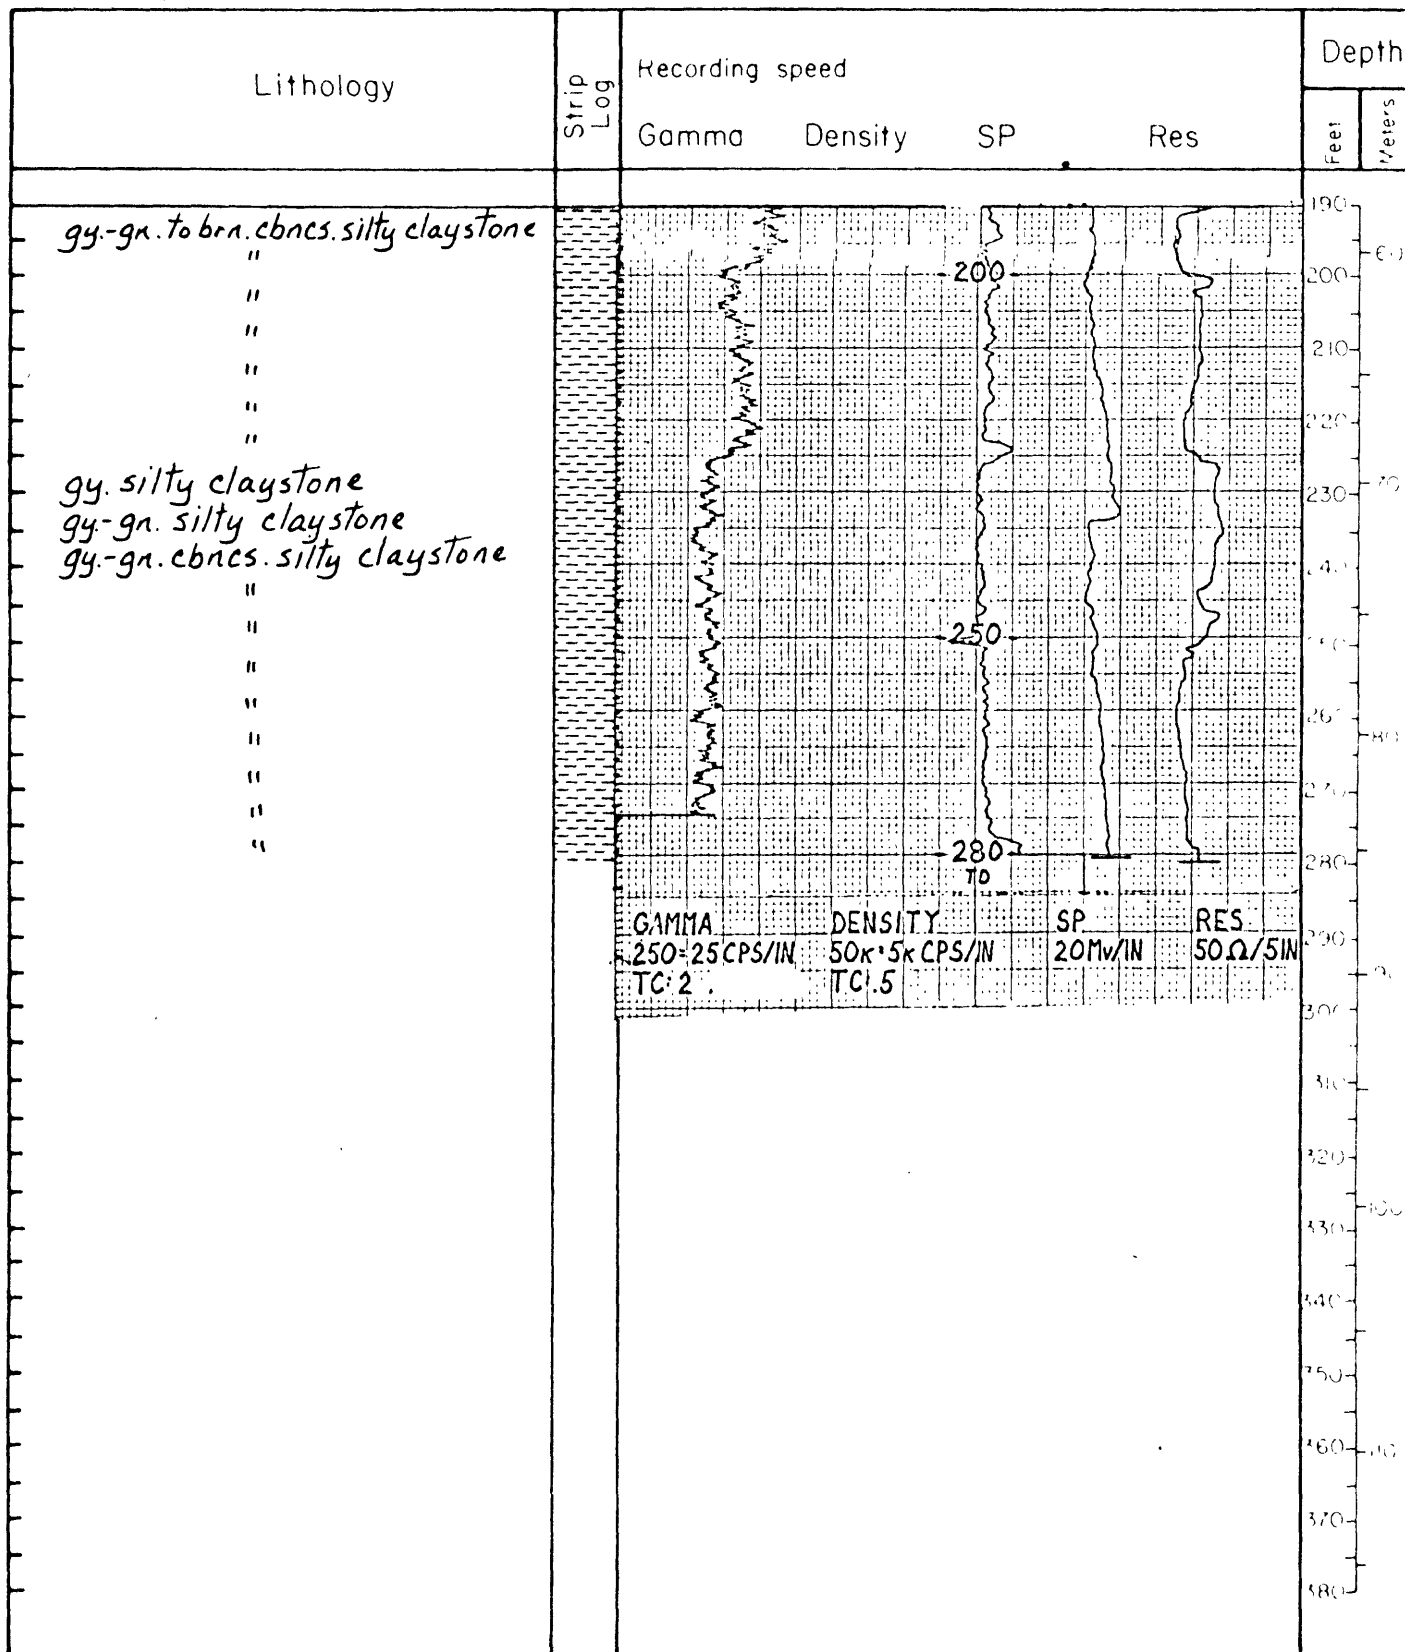 Lithology
Strip Log
Recording speed
Gamma Density SP Res
Depth
Feet
Meters
gy.-gn. to brn. cbncs. silty claystone
"
"
"
"
"
"
gy. silty claystone
gy.-gn. silty claystone
gy.-gn. cbncs. silty claystone
"
"
"
"
"
"
"
"
200
250
280
TD
GAMMA
250=25 CPS/IN
TC: 2
DENSITY
50K:5K CPS/IN
TC:.5
SP
20Mv/IN
RES
50Ω/5IN
190
200
210
220
230
240
250
260
270
280
290
300
310
320
330
340
350
360
370
380
60
70
80
100